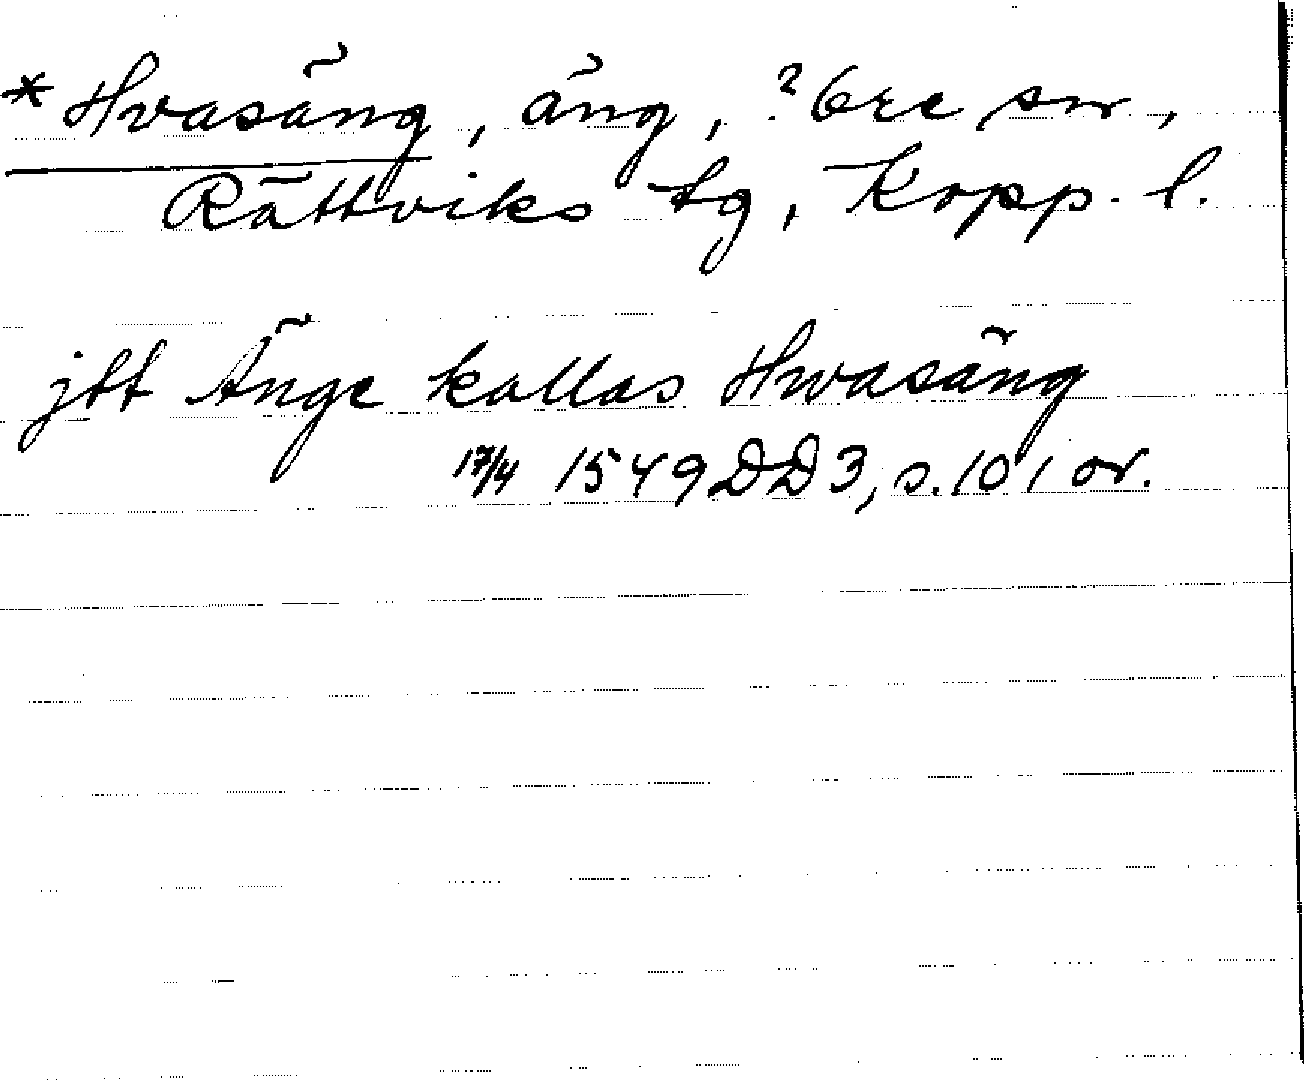 * Hvasäng, äng, ? Ore sn,
Rättviks tg, Kopp. l.
jtt Änge kallas Hwasäng
17/4 1549 DD3, s. 101 or.